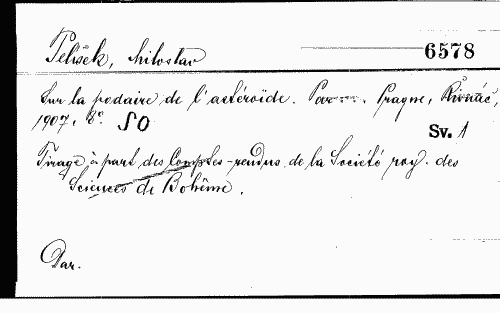 Pelíšek, Miloslav 6578
Sur la podaire de l'astéroïde. Par Prague, Řivnáč,
1907, 8°. SO
Sv. 1
Tirage à part des Comptes-rendus de la Société roy. des
Sciences de Bohême.
Dar.